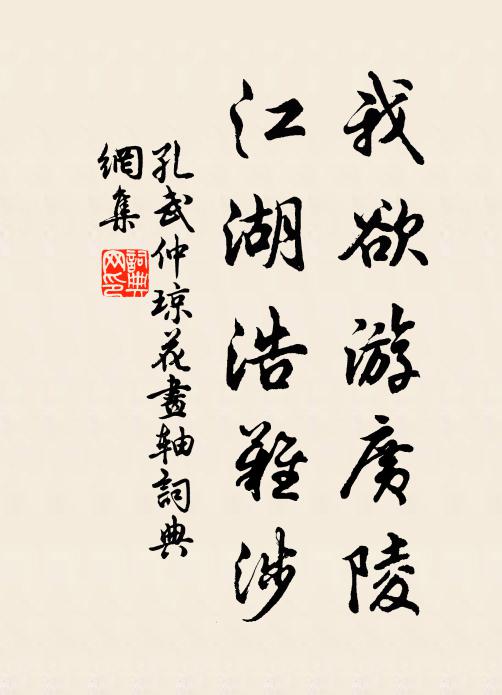 我欲游广陵
江湖浩難涉
孔武仲琼花畫軸詞典
網集
詞典
网印